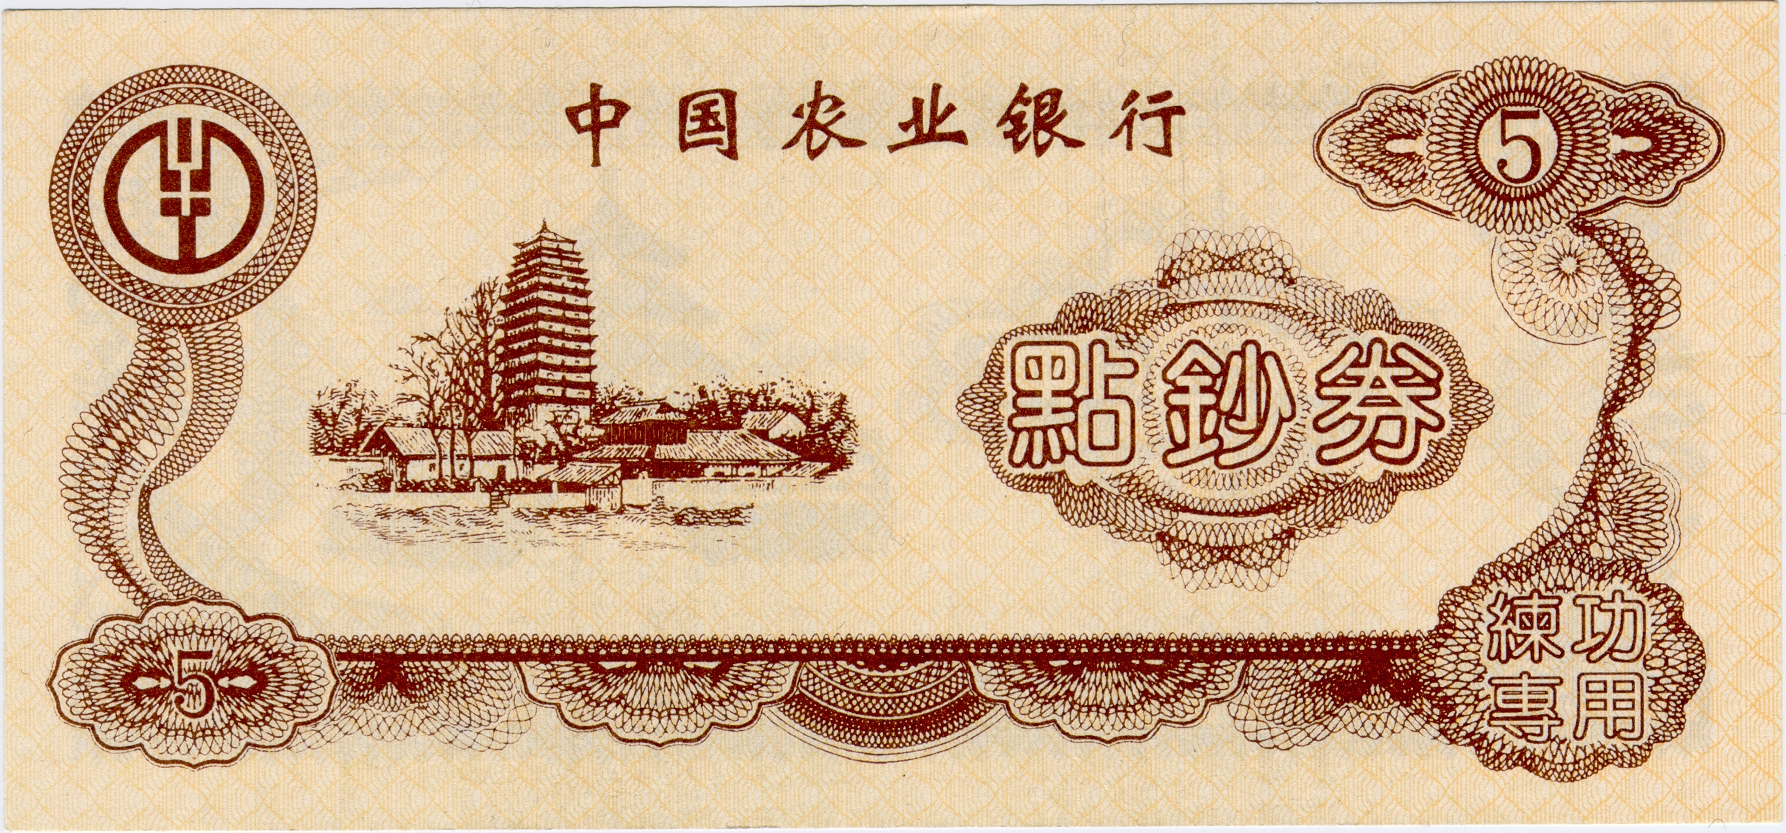 中国农业银行
5
點鈔券
5
練功
專用